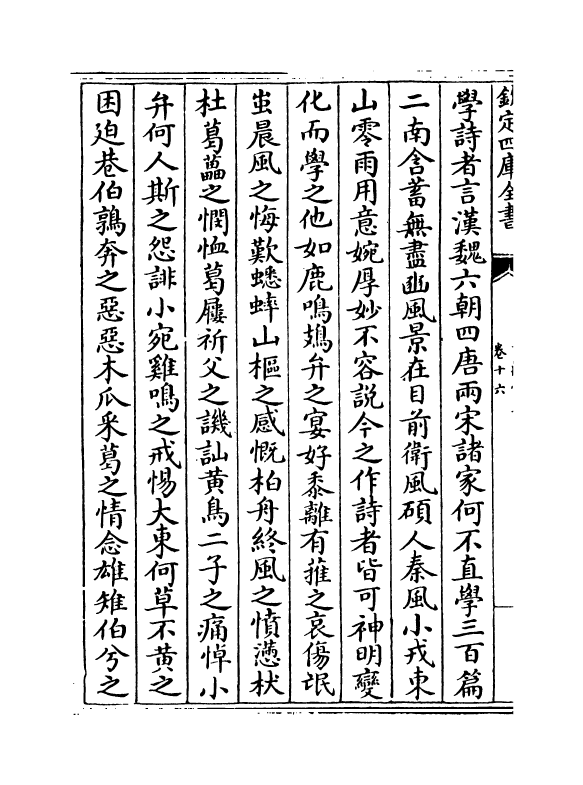 欽定四庫全書
卷十六
學詩者言漢魏六朝四唐兩宋諸家何不直學三百篇
二南含蓄無盡豳風景在目前衛風碩人秦風小戎東
山零雨用意婉厚妙不容説今之作詩者皆可神明變
化而學之他如鹿鳴頍弁之宴好黍離有蓷之哀傷氓
蚩晨風之悔歎蟋蟀山樞之感慨柏舟終風之憤懣杕
杜葛藟之憫恤葛屨祈父之譏訕黃鳥二子之痛悼小
弁何人斯之怨誹小宛雞鳴之戒惕大東何草不黃之
困迫巷伯鶉奔之惡惡木瓜采葛之情念雄雉伯兮之